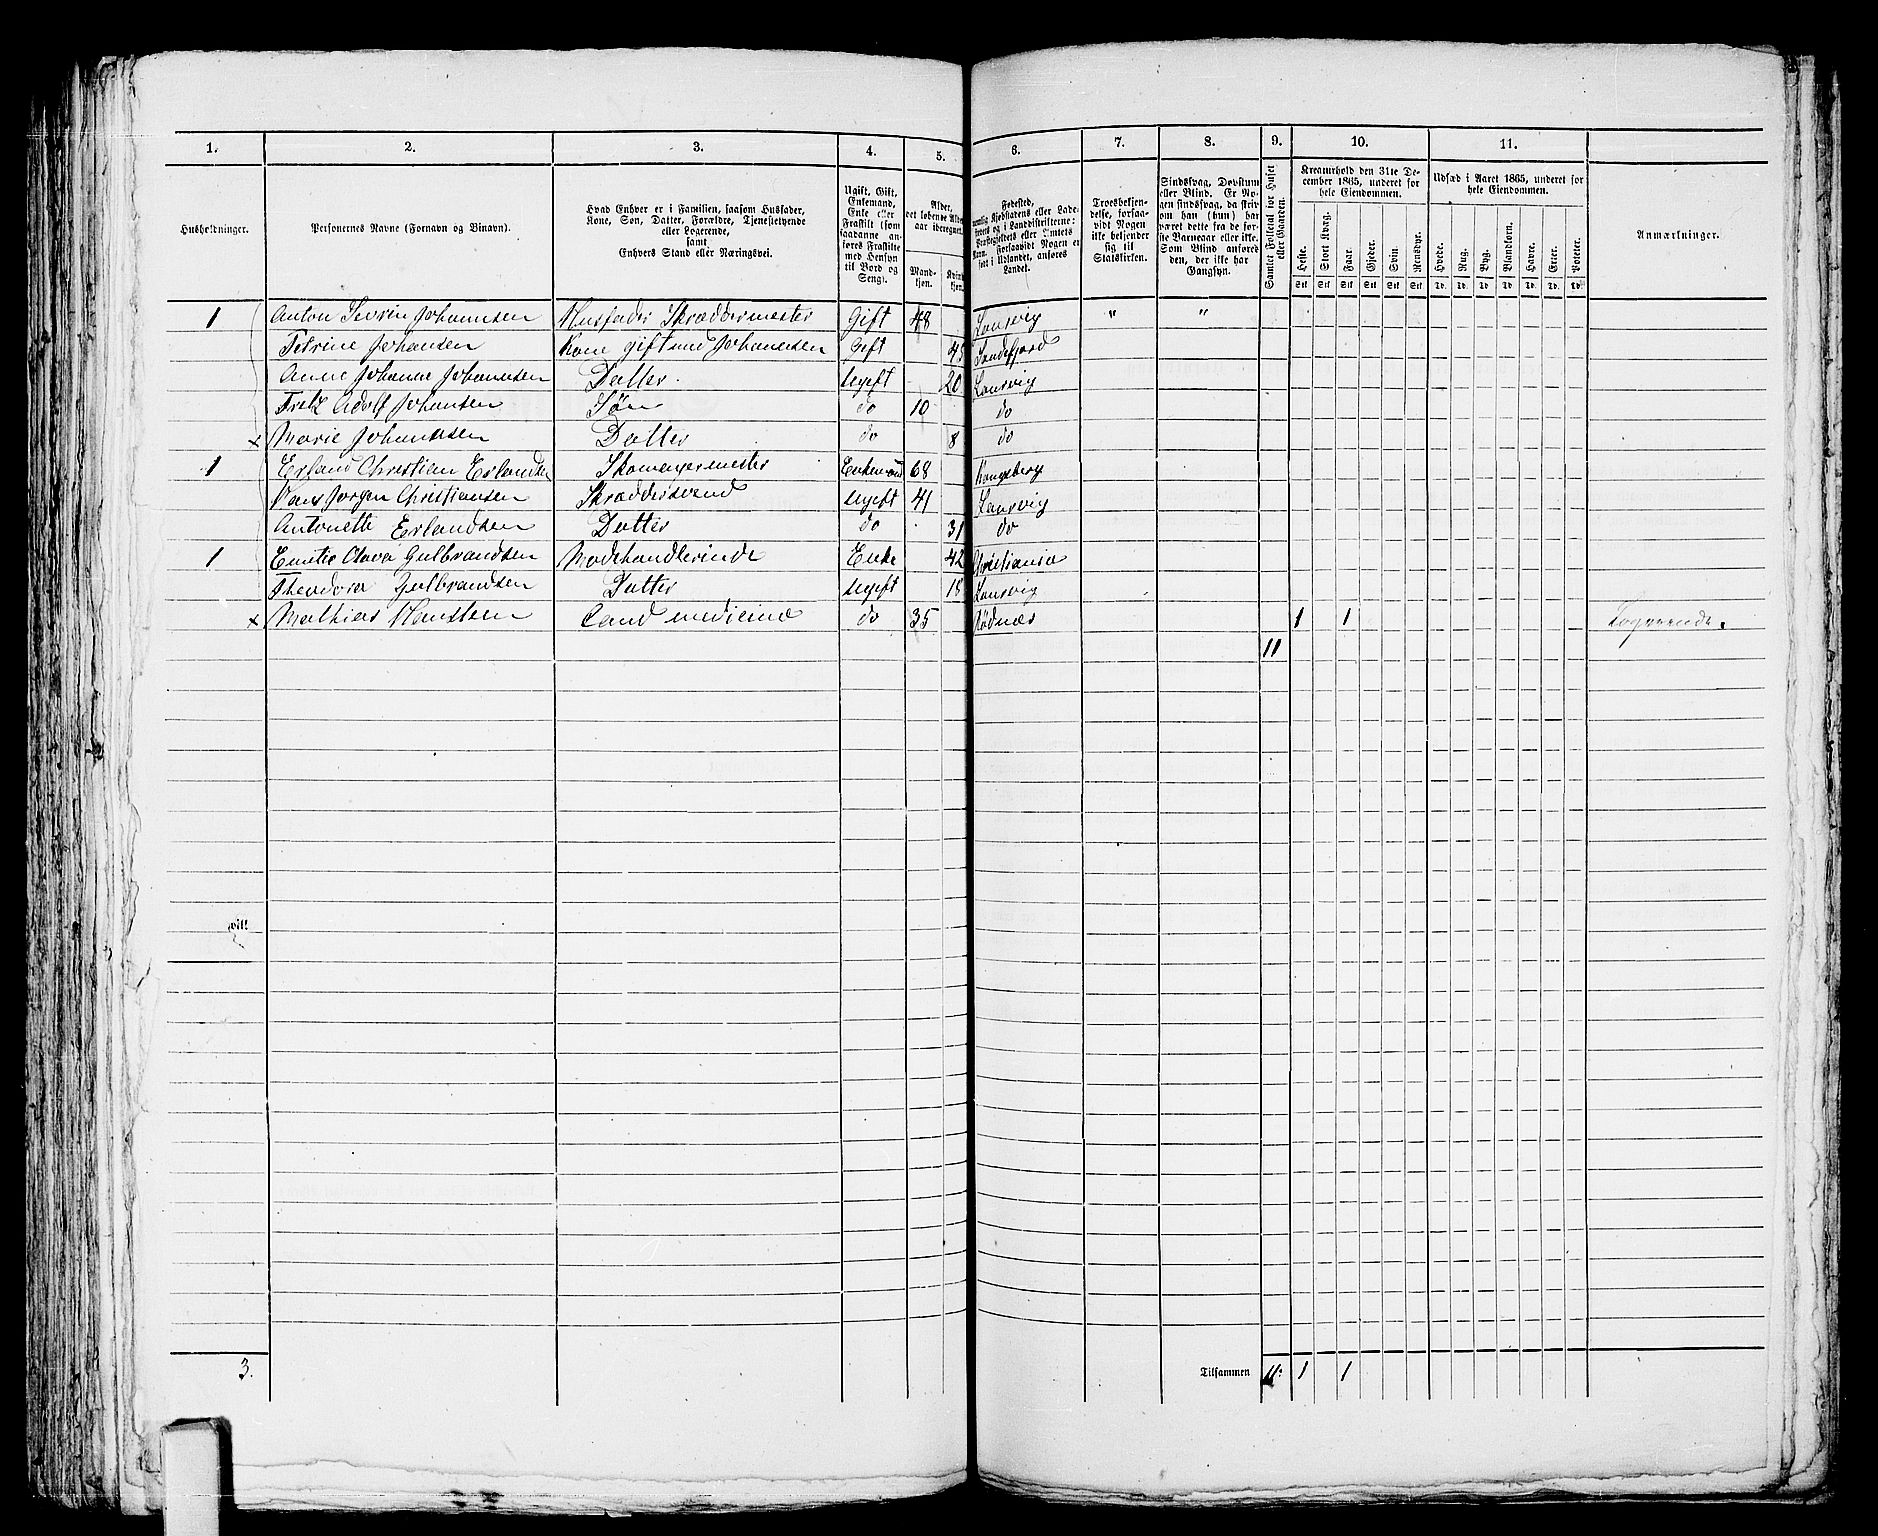 1. 2. 3. 4. 5. 6. 7. 8. 9. 10. 11.
Husholdninger.
Personernes Navne (Fornavn og Binavn).
Hvad Enhver er i Familien, saasom Husfader,
Kone, Søn, Datter, Forældre, Tjenestetyende
eller Logerende,
samt
Enhvers Stand eller Næringsvei.
Ugift, Gift,
Enkemand,
Enke eller
Fraskilt (som
saadanne an-
føres Fraskilte
med Hensyn
til Bord og
Seng).
Alder,
det løbende Alders-
aar iberegnet.
Mand-
kjøn.
Kvinde-
kjøn.
Fødested,
Landet.
Troesbekjen-
delse, forsaa-
vidt Nogen
ikke bekjender
sig til
Statskirken.
Sindssvag, Døvstum
eller Blind. Er No-
gen sindssvag, da skriv
om han (hun) har
været dette fra de før-
ste Barneaar eller ikke.
Som Blind anføres
den, der ikke har
Gangsyn.
Samlet Folketal for Huset
eller Gaarden.
Kreaturhold den 31te De-
cember 1865, underet for
hele Eiendommen.
Heste. Stort Kvæg. Faar. Gjeder. Svin. Rensdyr.
Udsæd i Aaret 1865, underet for
hele Eiendommen.
Hvede. Rug. Byg. Blandkorn. Havre. Erter. Poteter.
Stk Stk Stk Stk Stk Stk Td. Td. Td. Td. Td. Td. Td.
Anmærkninger.
1 Anton Sevrin Johannsen Husfader Skræddermester Gift 48 Laurvig " "
Petrine Johansen Kone gift med Johannsen Gift 45 Sandefjord
Anne Johanne Johannsen Datter. Ugift 20 Laurvig
Fretz Adolf Johansen Søn do 10 do
x Marie Johannsen Datter do 8 do
1 Erland Christian Erlandsen Skomagermester Enkemand 68 Kongsberg
Hans Jørgen Christiansen Skræddersvend Ugift 41 Laurvig
Antonette Erlandsen Datter do 31 do
1 Emilie Clava Gulbrandsen Modehandlerinde Enke 42 Christiania
Theodora Gulbrandsen Datter Ugift 18 Laurvig
x Mathias Hanssen Cand medicinæ do 35 Rødnæs 1 1 Logerende.
11
3.
Tilsammen 11. 1 1